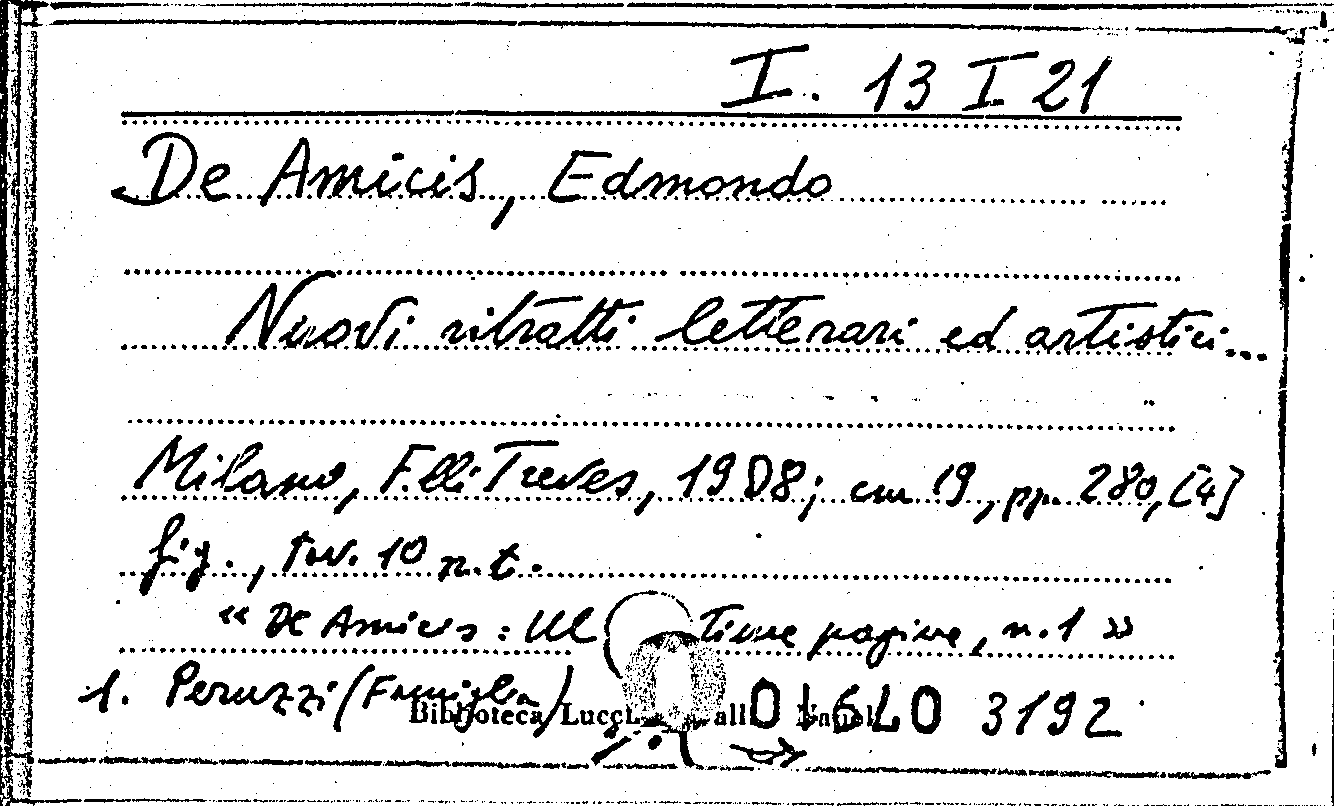 I. 13 I 21
De Amicis, Edmondo
Nuovi ritratti letterari ed artistici...
Milano, F.lli Treves, 1908; cm 19, pp. 280, [4]
fig., tav. 10 n.t.
« De Amicis: Ul time pagine, n. 1 »
1. Peruzzi (Famiglia) 3192
Biblioteca Lucchesi Palli Napoli